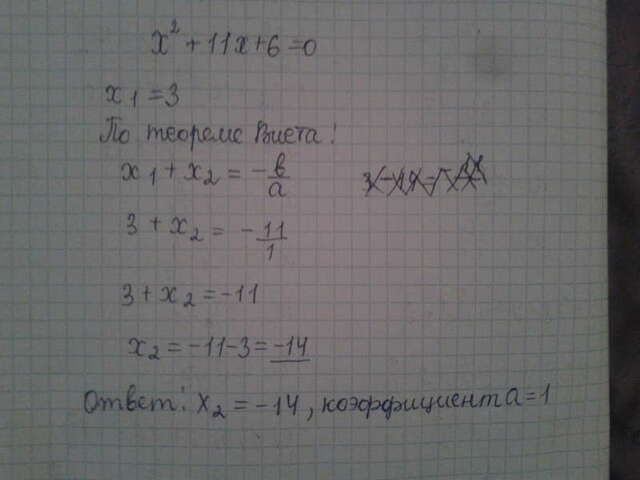 x² + 11x + 6 = 0
x₁ = 3
По теореме Виета!
x₁ + x₂ = -в/а
3 + x₂ = -11/1
3 + x₂ = -11
x₂ = -11-3 = -14
Ответ: x₂ = -14, коэффициент а=1